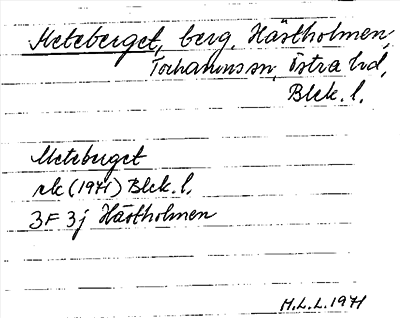 Meteberget, berg, Hästholmen,
Torhamns sn, Östra hd,
Blek. l.
Meteberget
rk (1971) Blek. l.
3F 3j Hästholmen
M.L.L. 1971